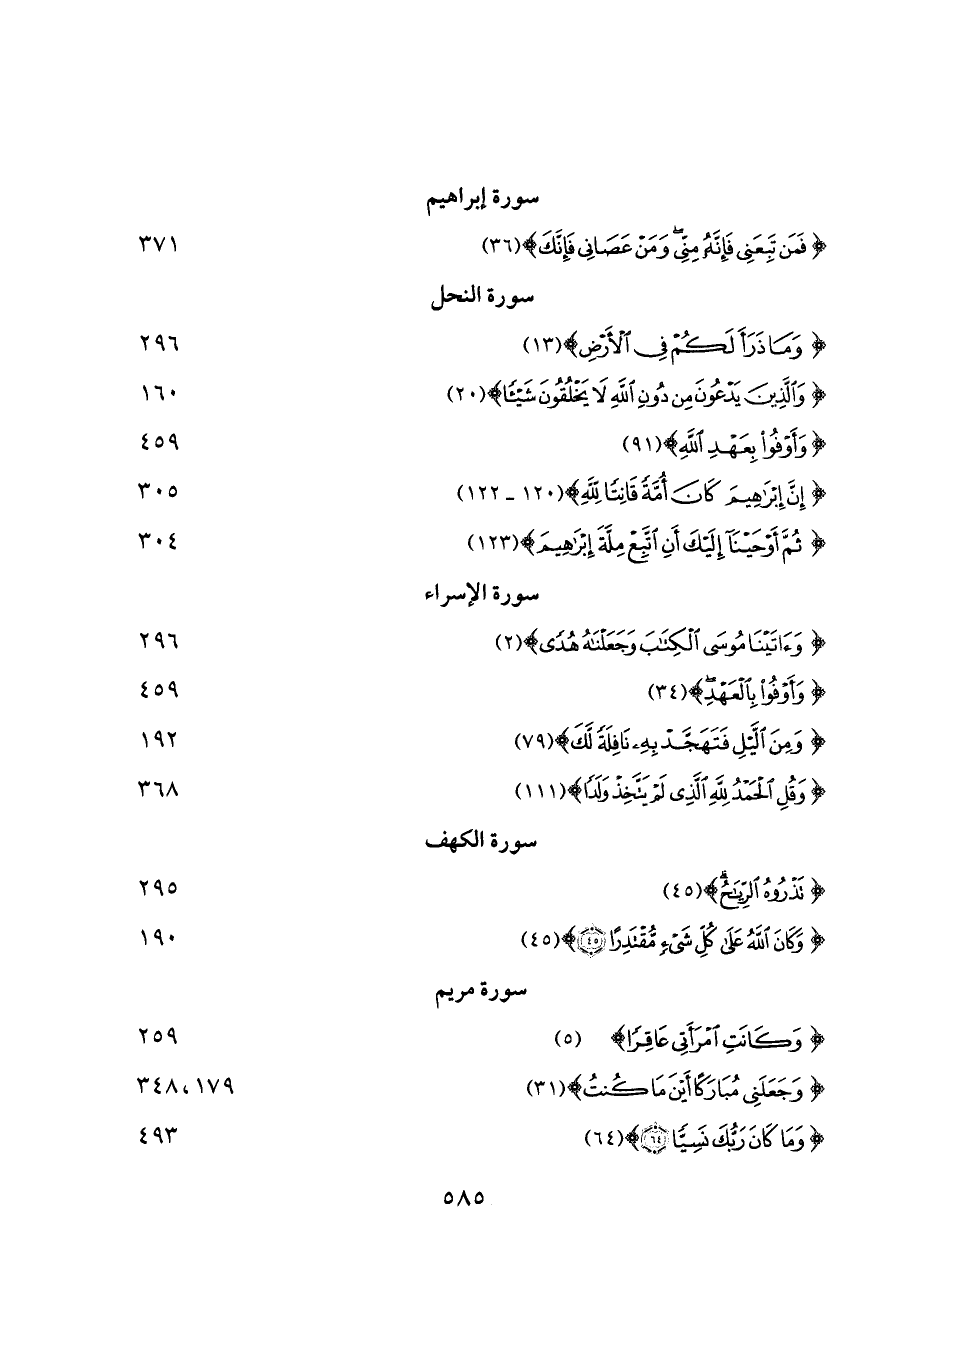 سورة إبراهيم
﴿ فَمَن تَبِعَنِى فَإِنَّهُۥ مِنِّىۖ وَمَنْ عَصَانِى فَإِنَّكَ﴾(٣٦) ٣٧١
سورة النحل
﴿ وَمَا ذَرَأَ لَكُمْ فِى ٱلْأَرْضِ﴾(١٣) ٢٩٦
﴿ وَٱلَّذِينَ يَدْعُونَ مِن دُونِ ٱللَّهِ لَا يَخْلُقُونَ شَيْـًٔا﴾(٢٠) ١٦٠
﴿ وَأَوْفُوا۟ بِعَهْدِ ٱللَّهِ﴾(٩١) ٤٥٩
﴿ إِنَّ إِبْرَٰهِيمَ كَانَ أُمَّةً قَانِتًا لِّلَّهِ﴾(١٢٠ ـ ١٢٢) ٣٠٥
﴿ ثُمَّ أَوْحَيْنَآ إِلَيْكَ أَنِ ٱتَّبِعْ مِلَّةَ إِبْرَٰهِيمَ﴾(١٢٣) ٣٠٤
سورة الإسراء
﴿ وَءَاتَيْنَا مُوسَى ٱلْكِتَٰبَ وَجَعَلْنَٰهُ هُدًى﴾(٢) ٢٩٦
﴿ وَأَوْفُوا۟ بِٱلْعَهْدِۖ﴾(٣٤) ٤٥٩
﴿ وَمِنَ ٱلَّيْلِ فَتَهَجَّدْ بِهِۦ نَافِلَةً لَّكَ﴾(٧٩) ١٩٢
﴿ وَقُلِ ٱلْحَمْدُ لِلَّهِ ٱلَّذِى لَمْ يَتَّخِذْ وَلَدًا﴾(١١١) ٣٦٨
سورة الكهف
﴿ تَذْرُوهُ ٱلرِّيَٰحُۗ﴾(٤٥) ٢٩٥
﴿ وَكَانَ ٱللَّهُ عَلَىٰ كُلِّ شَىْءٍ مُّقْتَدِرًا ٤٥﴾(٤٥) ١٩٠
سورة مريم
﴿ وَكَانَتِ ٱمْرَأَتِى عَاقِرًا﴾ (٥) ٢٥٩
﴿ وَجَعَلَنِى مُبَارَكًا أَيْنَ مَا كُنتُ﴾(٣١) ١٧٩، ٣٤٨
﴿ وَمَا كَانَ رَبُّكَ نَسِيًّا ٦٤﴾(٦٤) ٤٩٣
٥٨٥